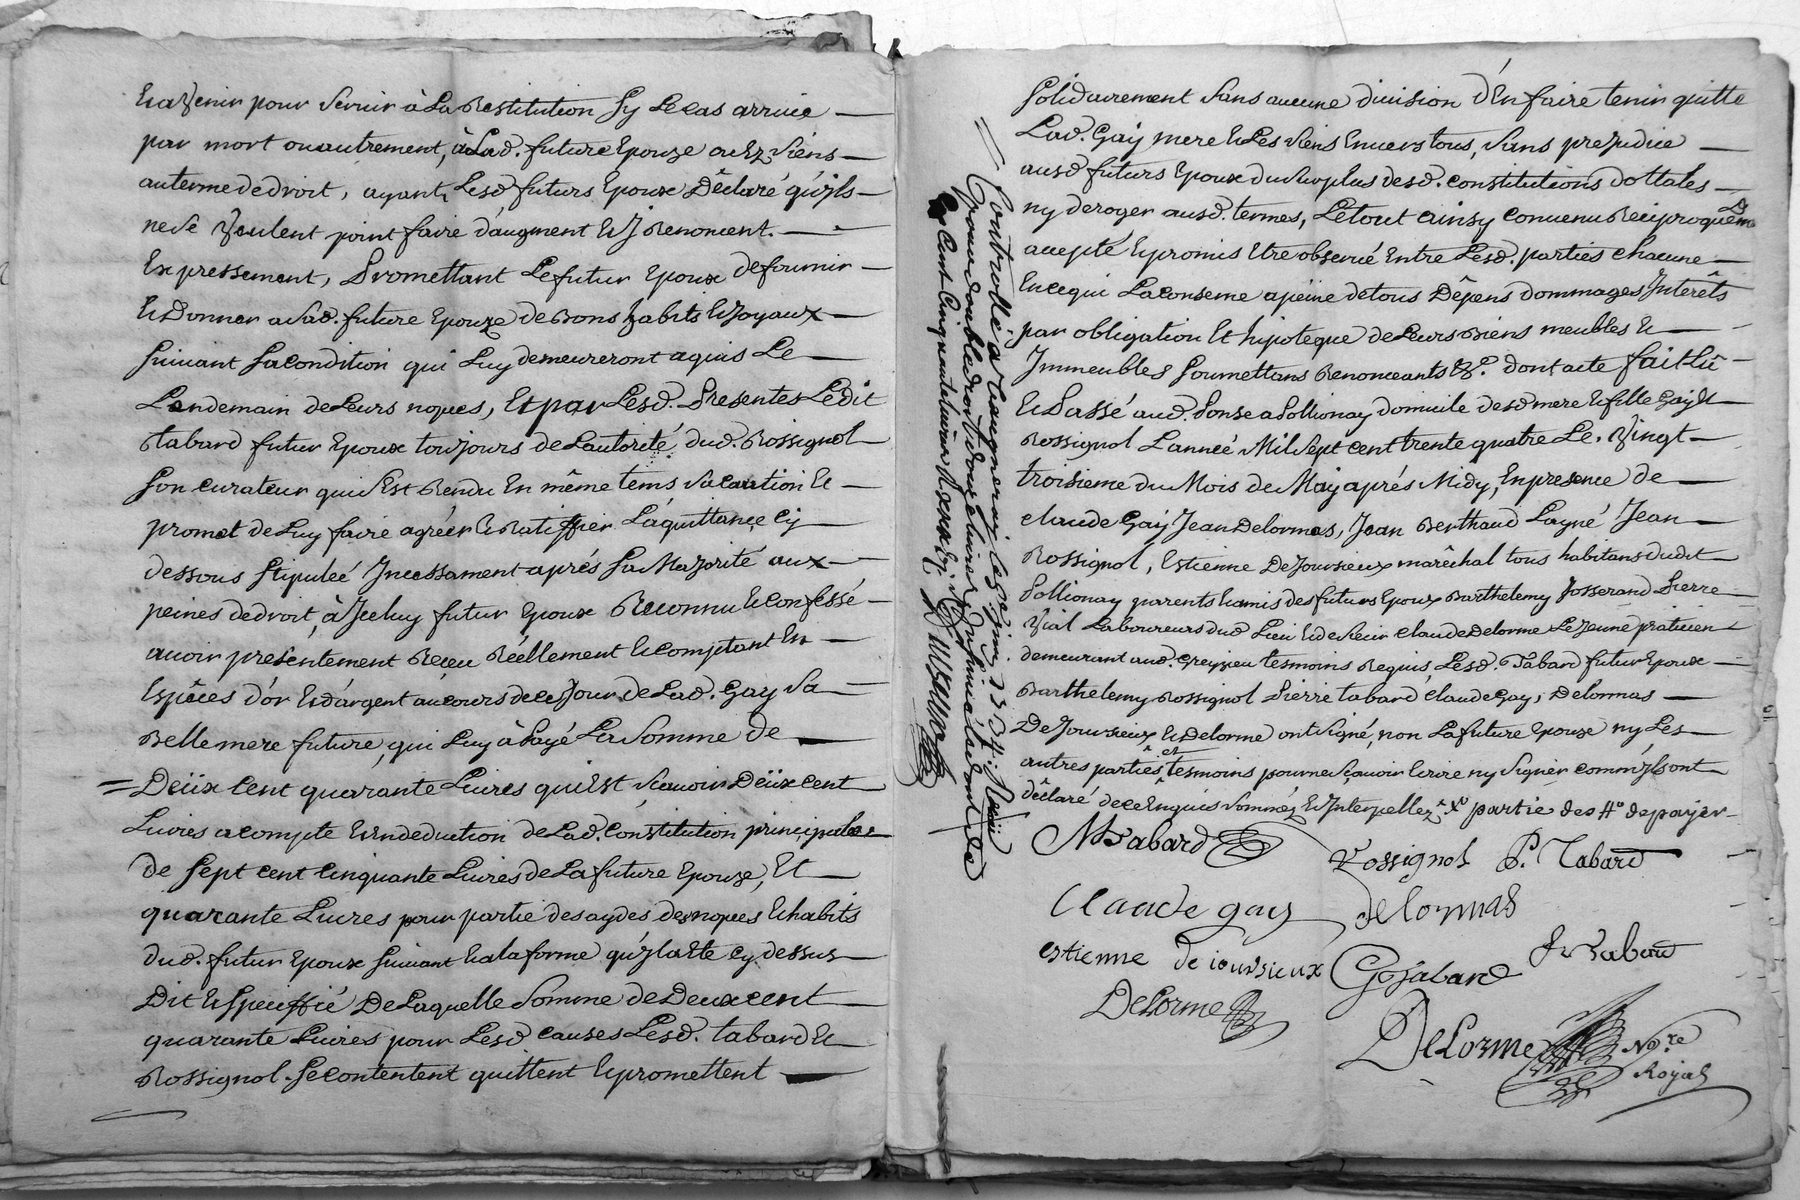 Et avenir pour servir à La Restitution sy Le cas arrive
par mort ou autrement, à Lad. future Epouze ou Ez siens
au terme de droit, ayants Lesd futurs Epoux Déclaré qu'ils
ne se Veulent point faire d'augment Et y Renoncent.
Expressement, Promettant Le futur Epoux de fournir
Et Donner a Sad. future Epouze de Bons habits Et Joyaux
suivant sa condition qui Luy demeureront aquis Le
Landemain de Leurs nopces, Et par Lesd. Presentes Ledit
tabard futur Epoux toujours de L'autorité dud. Rossignol
son curateur qui s'Est Rendu En même tems sa caution Et
promet de Luy faire agréer Et Ratiffier L'aquittance cy
dessous stipuleé Incessament aprés sa Majorité aux
peines de droit, à Iceluy futur Epoux Reconnu Et confessé
avoir presentement Receu Réellement Et comptant En
Espêces d'or Et d'argent au cours de ce Jour de Lad. Gay sa
Belle mere future, qui Luy à Payé La somme de
= Deüx Cent quarante Livres qui Est scavoir Deüx cent
Livres a compte Et En deduction de Lad. constitution principalle
de sept cent cinquante Livres de La future Epouze, Et
quarante Livres pour partie des aydes de nopces Et habits
dud. futur Epoux suivant Et a la forme qu'il a Eté cy dessus
Dit Et Speciffié De Laquelle somme de Deux cent
quarante Livres pour Lesd causes Lesd. tabard Et
Rossignol se contentent quittent Et promettent
solidairement sans aucune division d'En faire tenir quitte
Lad. Gay mere Et Les siens Envers tous, sans prejudice
ausd futurs Epoux du surplus desd. constitutions dottales
ny deroger ausd. termes, Le tout ainsy convenu Reciproquem
accepté Et promis Etre observé Entre Lesd. parties chacune
En ce qui La conserne a peine de tous Dêpens dommages Interêts
par obligation Et hipoteque de Leurs Biens meubles Et
Immeubles soumettans Renonceants &c. dont acte fait Lû
Et Passé aud. Ponse a Pollionay domicile desd mere Et fille Gay Et
Rossignol L'anneé Mil Sept cent trente quatre Le Vingt
troisieme du Mois de May aprés Midy, En presence de
claude Gay Jean Delormas, Jean Berthaud Layné Jean
Rossignol, Estienne De Joursieux marêchal tous habitans dudit
Pollionay parents Et amis des futurs Epoux Barthelemy Josserand Pierre
Vial Laboureurs dud Lieu Et de sieur claude Delorme Le Jeune praticien
demeurant aud. Greyzieu tesmoins Requis, Lesd. Tabard futur Epoux
Barthelemy Rossignol Pierre tabard claude Gay, Delormas
De Joursieux Et Delorme ont signé, non La future Epouze ny Les
autres parties et tesmoins pour ne sçavoir Ecrire ny signer comm'ils ont
déclaré de ce Enquis sommés Et Interpellez partie des 4º de payer
M Tabard Rossignol P. Tabard
Claude gay delormas
estienne de ioursieux G Tabard Tabard
Delorme
Delorme Nore
Royal
Controllé a Vaugneray le 5e juin 1734. Reçu
pour double droit douze livres du futur
Cent Cinquante